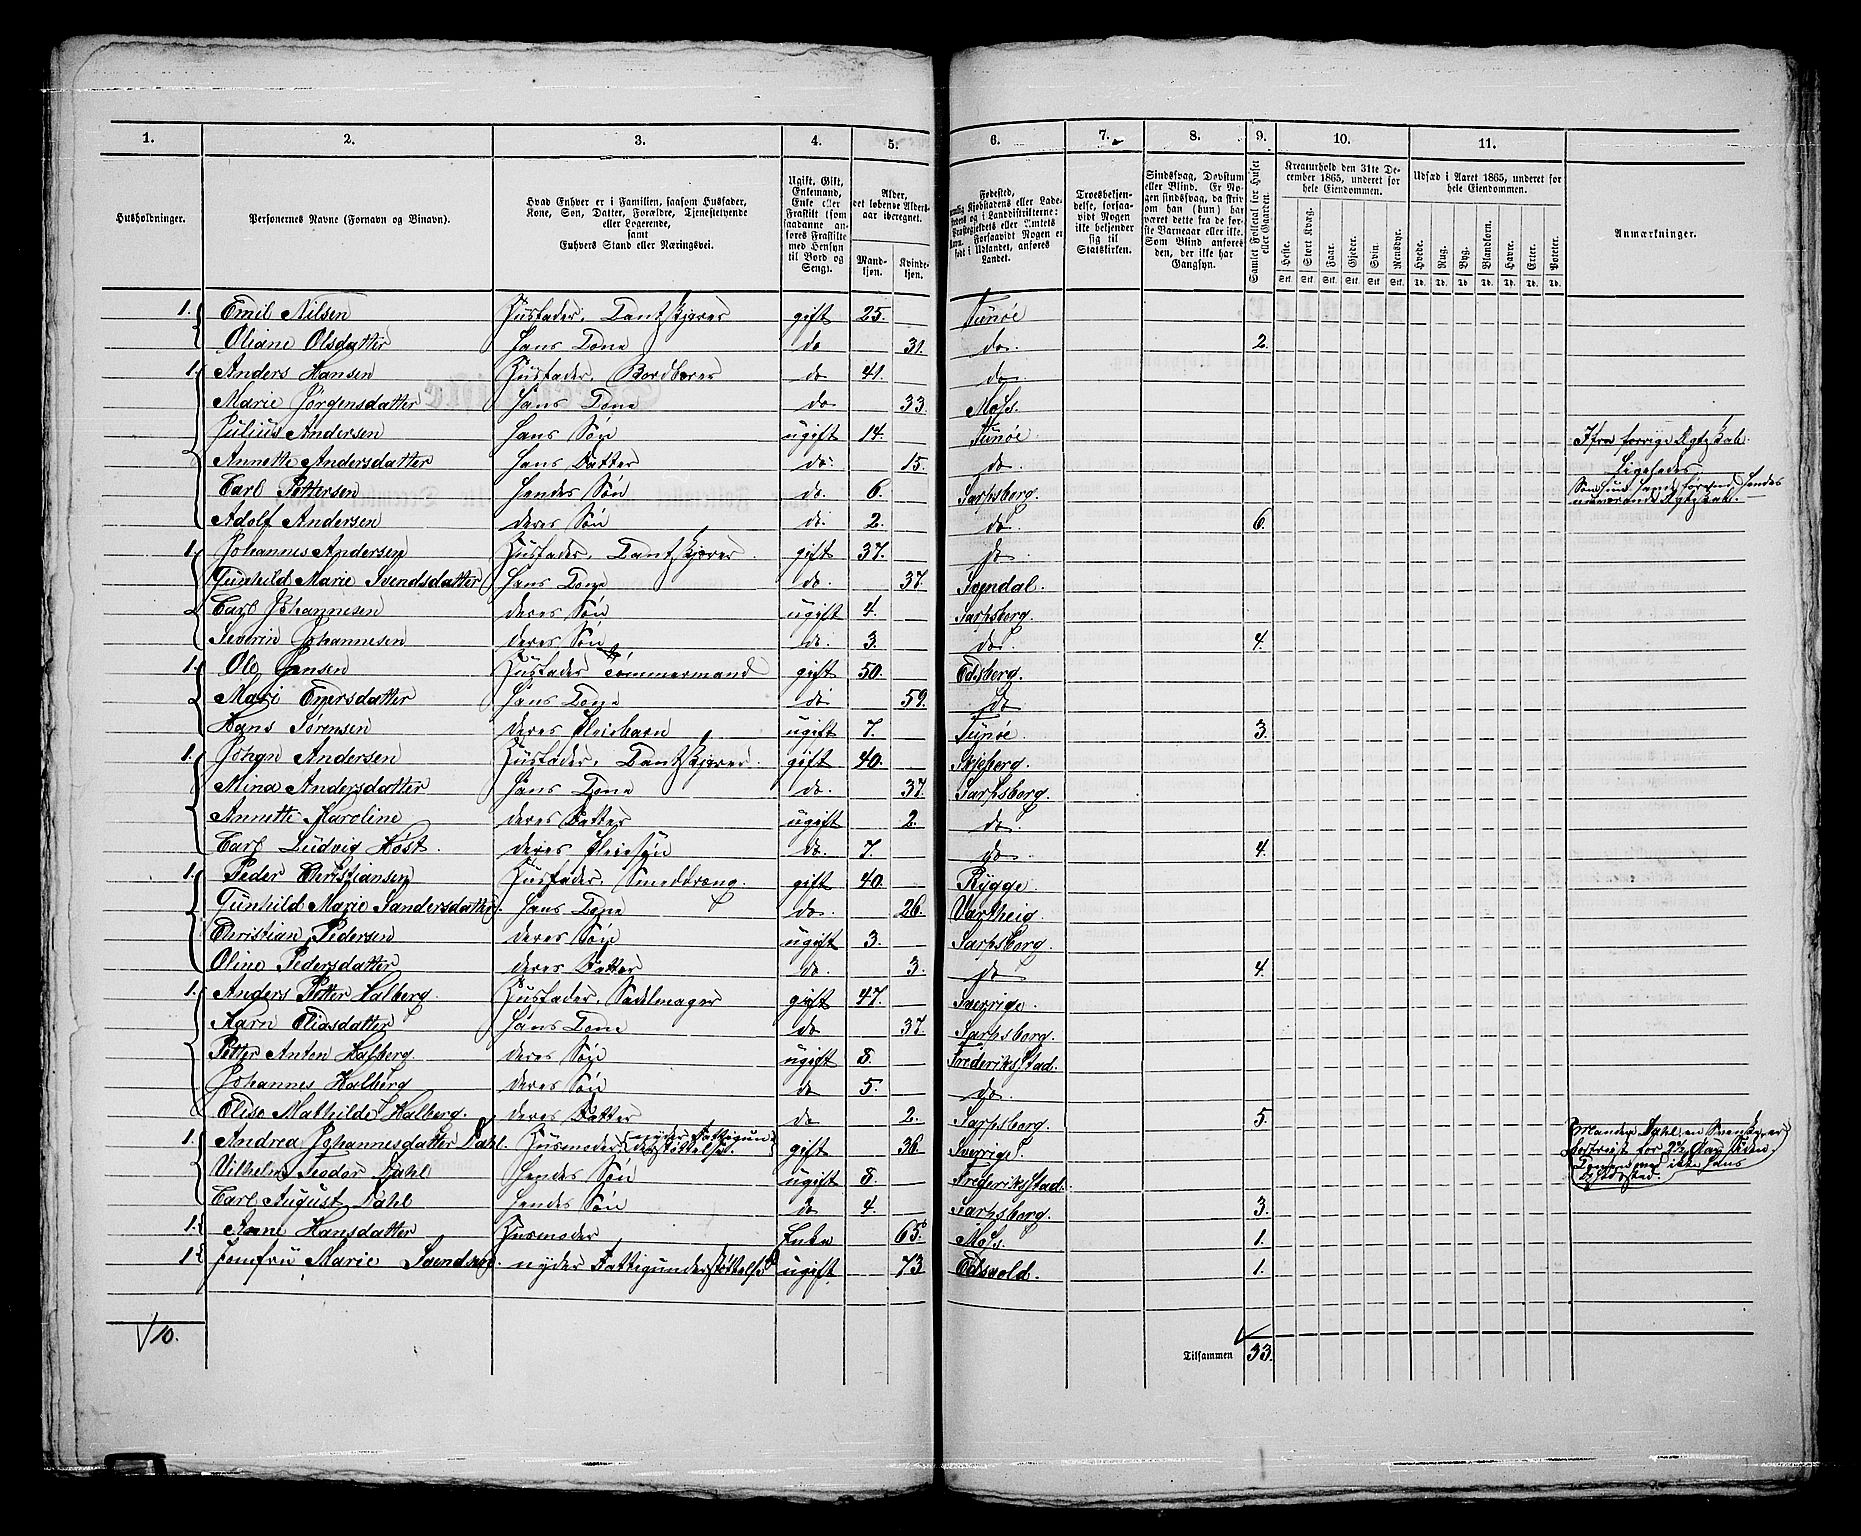 1. 2. 3. 4. 5. 6. 7. 8. 9. 10. 11.
Husholdninger.
Personernes Navne (Fornavn og Binavn).
Hvad Enhver er i Familien, saasom Husfader, Kone, Søn, Datter, Forældre, Tjenestetyende eller Logerende, samt Enhvers Stand eller Næringsvei.
Ugift, Gift, Enkemand, Enke eller Fraskilt (som saadanne anføres Fraskilte med Hensyn til Bord og Seng).
Alder, det løbende Alders-aar iberegnet.
Mand-kjøn. Kvinde-kjøn.
Troesbekjendelse, forsaavidt Nogen ikke bekjender sig til Statskirken.
Sindssvag, Døvstum eller Blind. Er Nogen sindssvag, da skriv om han (hun) har været dette fra de første Barneaar eller ikke. Som Blind anføres den, der ikke har Gangsyn.
Samlet Folketal for Huset eller Gaarden.
Kreaturhold den 31te December 1865, underet for hele Eiendommen.
Heste. Stort Kvæg. Faar. Gjeder. Svin. Rensdyr.
Udsæd i Aaret 1865, underet for hele Eiendommen.
Hvede. Rug. Byg. Blandkorn. Havre. Erter. Poteter.
Anmærkninger.
1. Emil Nilsen Husfader, gift 25. Tunøe
Oliane Olsdatter Hans Kone do 31. do. 2.
1. Anders Hansen Husfader, Bordbærer do 41. do.
Marie Jørgensdatter Hans Kone do 33. Moss.
Julius Andersen Hans Søn ugift 14. Tunøe Ifra forrige Ægteskab.
Annette Andersdatter Hans Datter do. 15. do Ligeledes
Carl Pettersen Hendes Søn do. 6. Sarpsborg.
Adolf Andersen deres Søn do. 2. do. 6.
1. Johannes Andersen Husfader, gift 37. do
Gunhild Marie Svendsdatter Hans Kone do. 37.
Carl Johannesen deres Søn ugift 4. Sarpsborg.
Severin Johannesen deres Søn do. 3. do. 4.
1. Ole Jensen Husfader Tømmermand gift 50. Edsberg.
Mari Enersdatter Hans Kone do 59. do
Hans Sørensen deres Pleiebarn ugift 7. Tunøe 3.
1. Johan Andersen Husfader, gift 40. Skjeberg.
Mina Andersdatter Hans Kone do. 37. Sarpsborg.
Annette Karoline deres Datter ugift 2. do
Carl Ludvig Høst. deres Pleiesøn do. 7. do 4.
1. Peder Christiansen Husfader, Smeddreng. gift 40. Rygge
Gunhild Marie Sandersdatter. Hans Kone do. 26. Varteig
Christian Pedersen deres Søn ugift 3. Sarpsborg.
Oline Pedersdatter deres Datter do. 3. do 4.
1. Anders Petter Halberg. Husfader, Sadelmager gift 47. Sverrige.
Karn Eliasdatter Hans Kone do 37. Sarpsborg.
Petter Anton Halberg. deres Søn ugift 8. Frederiksstad.
Johannes Halberg deres Søn do 5. do.
Elise Mathilde Halberg. deres Datter do 2. Sarpsborg. 5.
1. Andrea Johannesdatter Dahl. Husmoder (nyder Fattigunderstøttelse.) gift 36. Sverrige.
Vilhelm Teodor Dahl Hendes Søn ugift 8. Frederiksstad.
Carl August Dahl Hendes Søn do 4. Sarpsborg. 3.
Manden Dahl, en Svenske, er bortreist for 2½ Aar siden.
1. Hansdatter Husmoder Enke 65. Moss. 1.
1. Jomfru Marie Svendsen. nyder Fattigunderstøttelse ugift 73 Edsvold. 1.
10. Tilsammen 33.